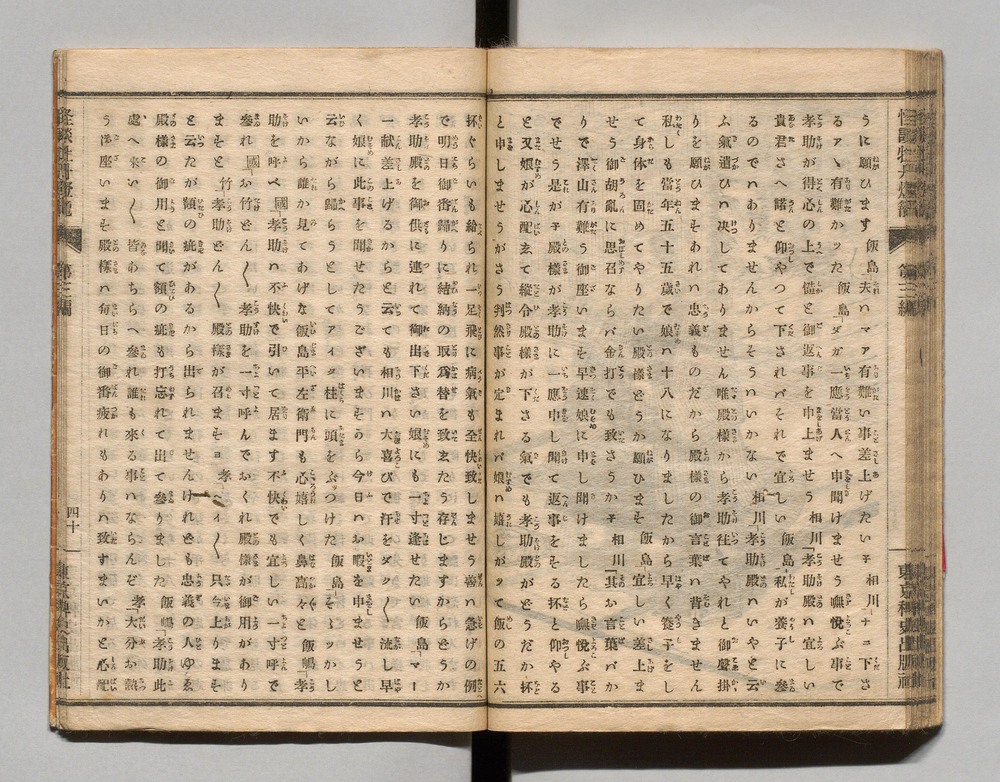 うに願ひます 飯島「夫ハマア有難い事差上げたいネ 相川「ナニ下さ
るアヽ有難かッた 飯島「ダガ一應當人へ申聞けませう嘸悅ぶ事で
孝助が得心の上で慥と御返事を申上ませう 相川「孝助殿ハ宜しい
貴君さへ諾と仰やつて下されバそれで宜しい 飯島「私が養子に參
るのでハありませんからそうハいかない 相川「孝助殿ハいやと云
ふ氣遣ひハ决してありません唯殿樣から孝助徃てやれと御聲掛
りを願ひますあれハ忠義ものだから殿樣の御言葉ハ背きません
私しも當年五十五歳で娘ハ十八になりましたから早く養子をし
て身体を固めてやりたい殿樣どうか願ひます 飯島「宜しい差上ま
せう御胡亂に思召ならバ金打でも致さうかネ 相川「其お言葉バか
りで澤山有難う御座います早速娘に申し聞けましたら嘸悅ぶ事
でせう是がネ殿樣が孝助に一應申し聞て返事をする抔と仰やる
と又娘が心配して縱令殿樣が下さる氣でも孝助殿がどうだか抔
と申しませうがさう判然事が定まれバ娘ハ嬉しがッて飯の五六
抔ぐらいも給られ一足飛に病氣も全快致しませう善ハ急げの例
で明日御番歸りに結納の取爲替を致したう存じますからどうか
孝助殿を御供に連れて御出下さい娘にも一寸逢せたい 飯島「マー
一献差上げるからと云ても相川ハ大喜びで汗をダク〱流し早
く娘に此事を聞せたうございますから今日ハお暇を申ませうと
云ながら歸らうとしてアイタ柱に頭をぶッつけた 飯島「そヽッかし
いから誰か見てあげな飯島平左衛門も心嬉しく鼻高々と 飯嶋「孝
助を呼べ 國「孝助ハ不快で引いて居ます 「不快でも宜しい一寸呼で
參れ 國「お竹どん〱孝助を一寸呼んでおくれ殿樣が御用があり
ますと 竹「孝助どん〱殿樣が召ますヨ 孝「ヘイ〱只今上ります
と云たが額の疵があるから出られませんけれども忠義の人ゆゑ
殿樣の御用と聞て額の疵も打忘れて出て參りました 飯嶋「孝助此
處へ來い〱皆あちらへ參れ誰も來る事ハならんぞ 孝「大分お熱
うほ座います殿樣ハ毎日の御番疲れもありハ致すまいかと心配
怪談牡丹燈籠
第三編
四十
東京稗史出版社